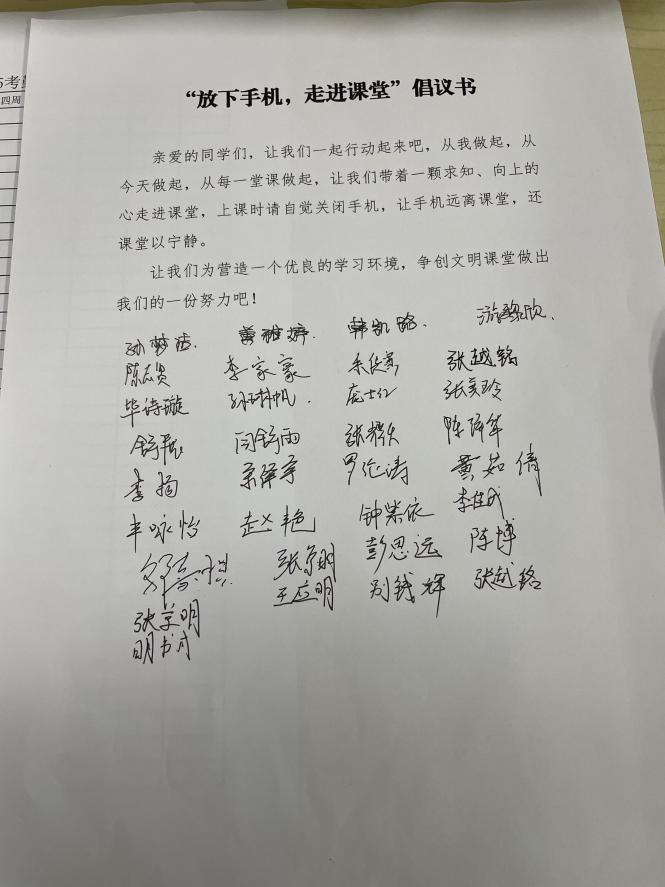 5考勤
四周
“放下手机，走进课堂”倡议书
亲爱的同学们，让我们一起行动起来吧，从我做起，从
今天做起，从每一堂课做起，让我们带着一颗求知、向上的
心走进课堂，上课时请自觉关闭手机，让手机远离课堂，还
课堂以宁静。
让我们为营造一个优良的学习环境，争创文明课堂做出
我们的一份努力吧！
孙梦洁. 韩凯璐.
陈志贵 李家豪 张越铭
毕诗璇 庞士仁 张美玲
舒展 闫舒雨
李扬 罗伦涛 黄茹倩
辛咏怡 赵艳 钟紫依 李佳成
彭思远 陈博
王应明 张越铭
张学明
明书才